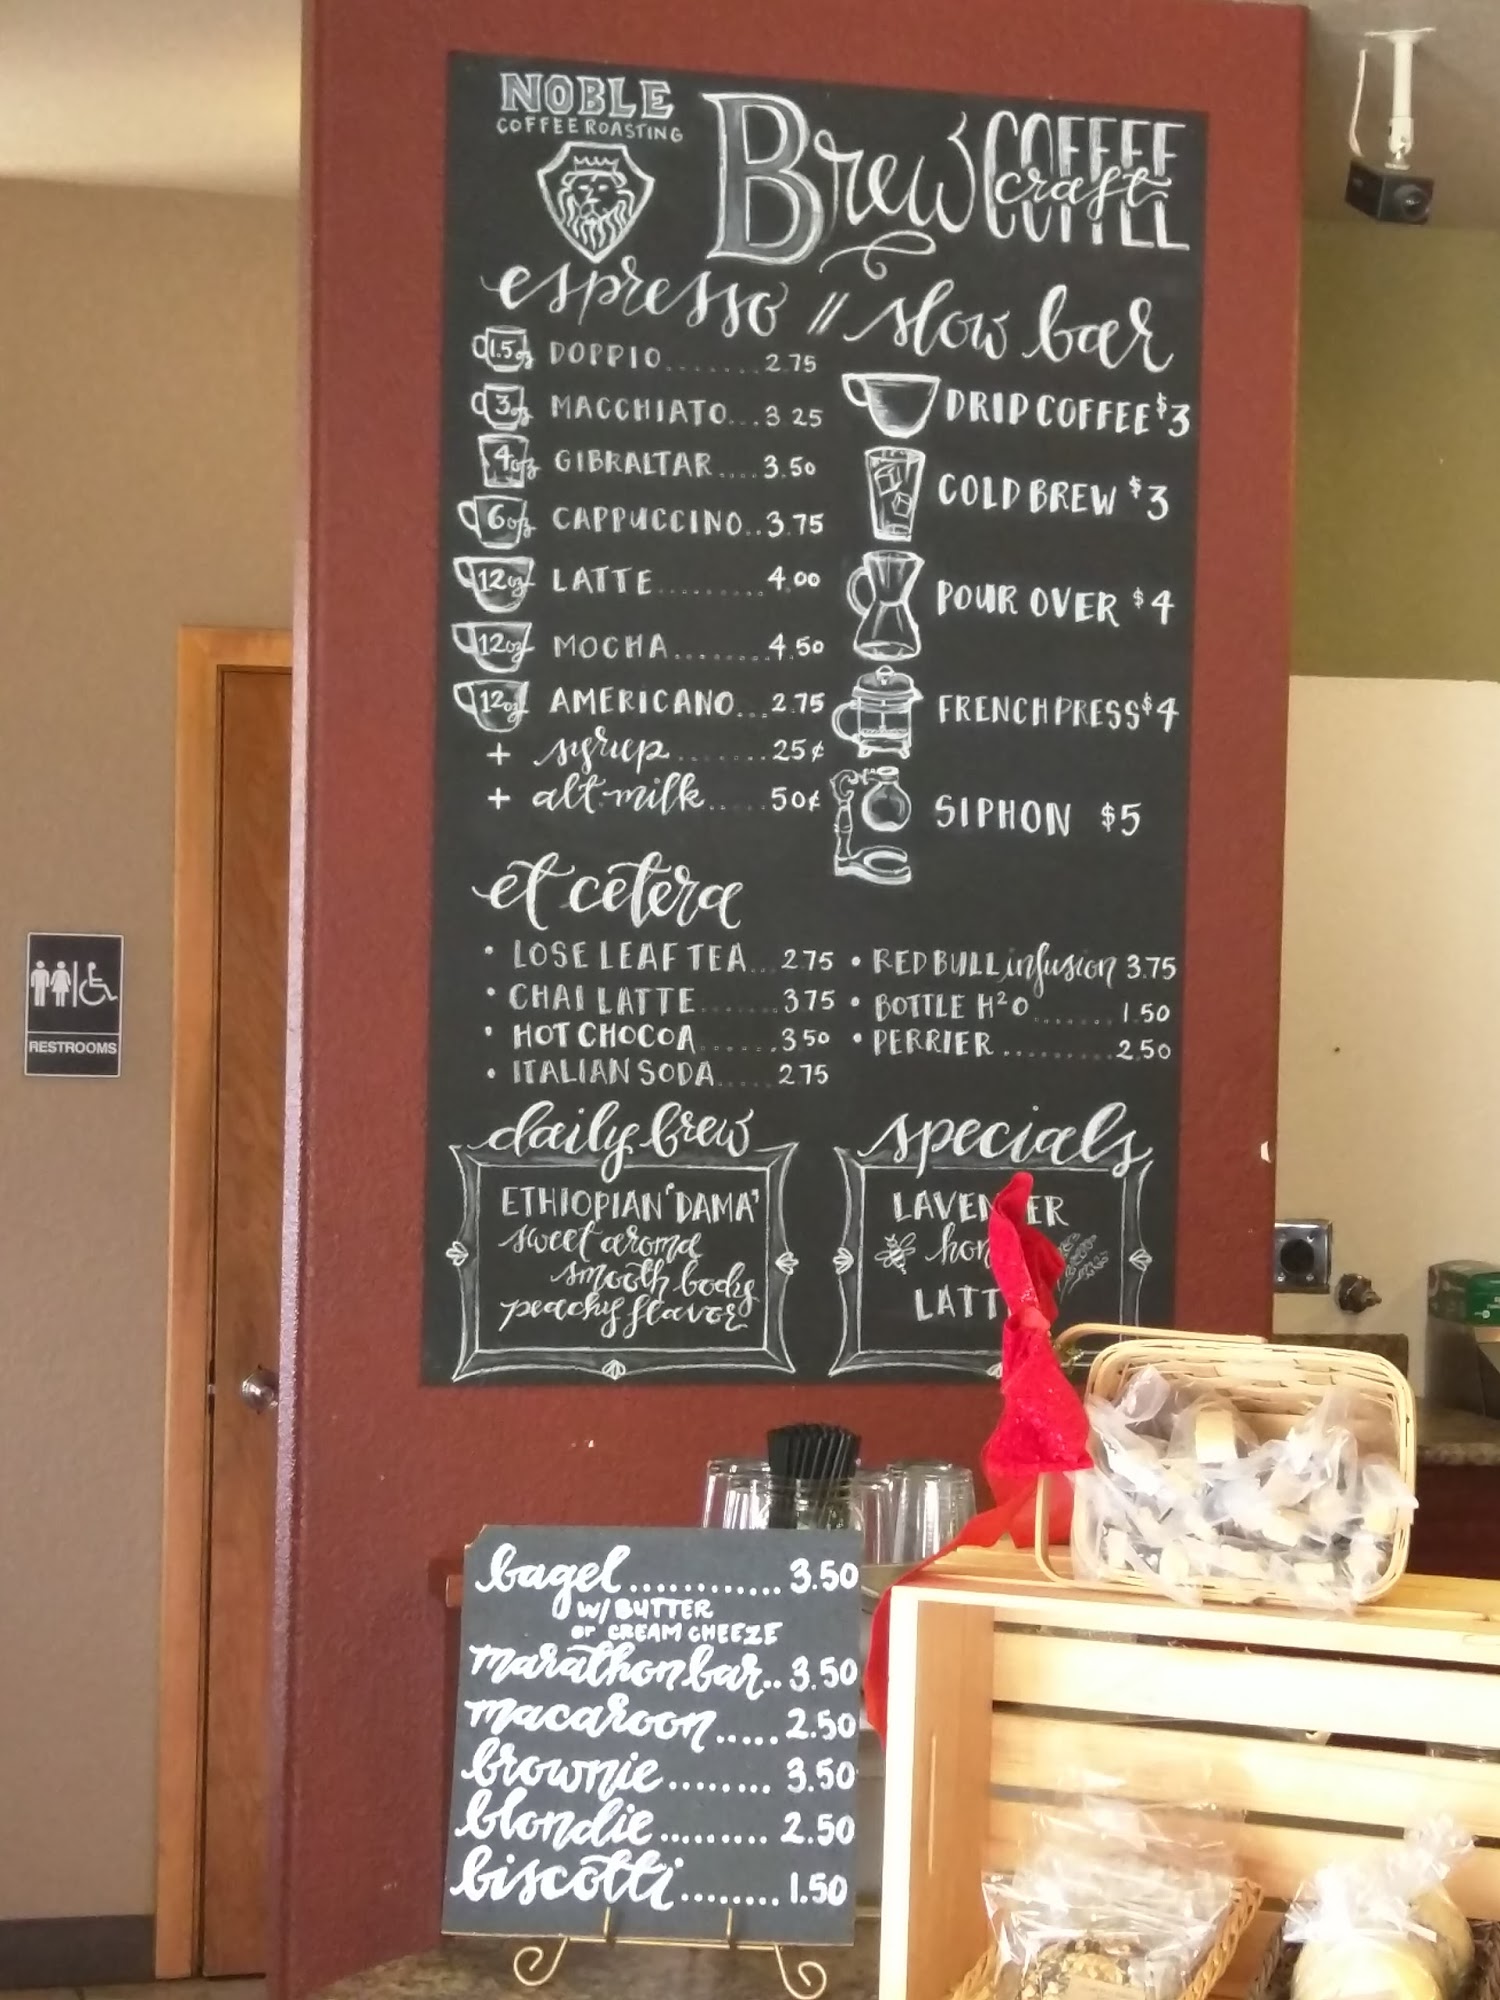 NOBLE
COFFEE ROASTING
Brew COFFEE
craft
COFFEE
espresso // slow bar
1.5oz DOPPIO........2.75
3oz MACCHIATO...3.25
4oz GIBRALTAR....3.50
6oz CAPPUCCINO..3.75
12oz LATTE.........4.00
12oz MOCHA........4.50
12oz AMERICANO...2.75
+ syrup........25¢
+ alt. milk.....50¢
DRIP COFFEE $3
COLD BREW $3
POUR OVER $4
FRENCH PRESS $4
SIPHON $5
et cetera
• LOSE LEAF TEA...2.75
• CHAI LATTE.......3.75
• HOT CHOCOA.......3.50
• ITALIAN SODA.....2.75
• RED BULL infusion 3.75
• BOTTLE H²O.......1.50
• PERRIER..........2.50
daily brew
ETHIOPIAN 'DAMA'
sweet aroma
smooth body
peachy flavor
specials
LAVENDER
LATTE
RESTROOMS
bagel............3.50
w/ BUTTER
or CREAM CHEEZE
marathon bar..3.50
macaroon.....2.50
brownie........3.50
blondie.........2.50
biscotti........1.50